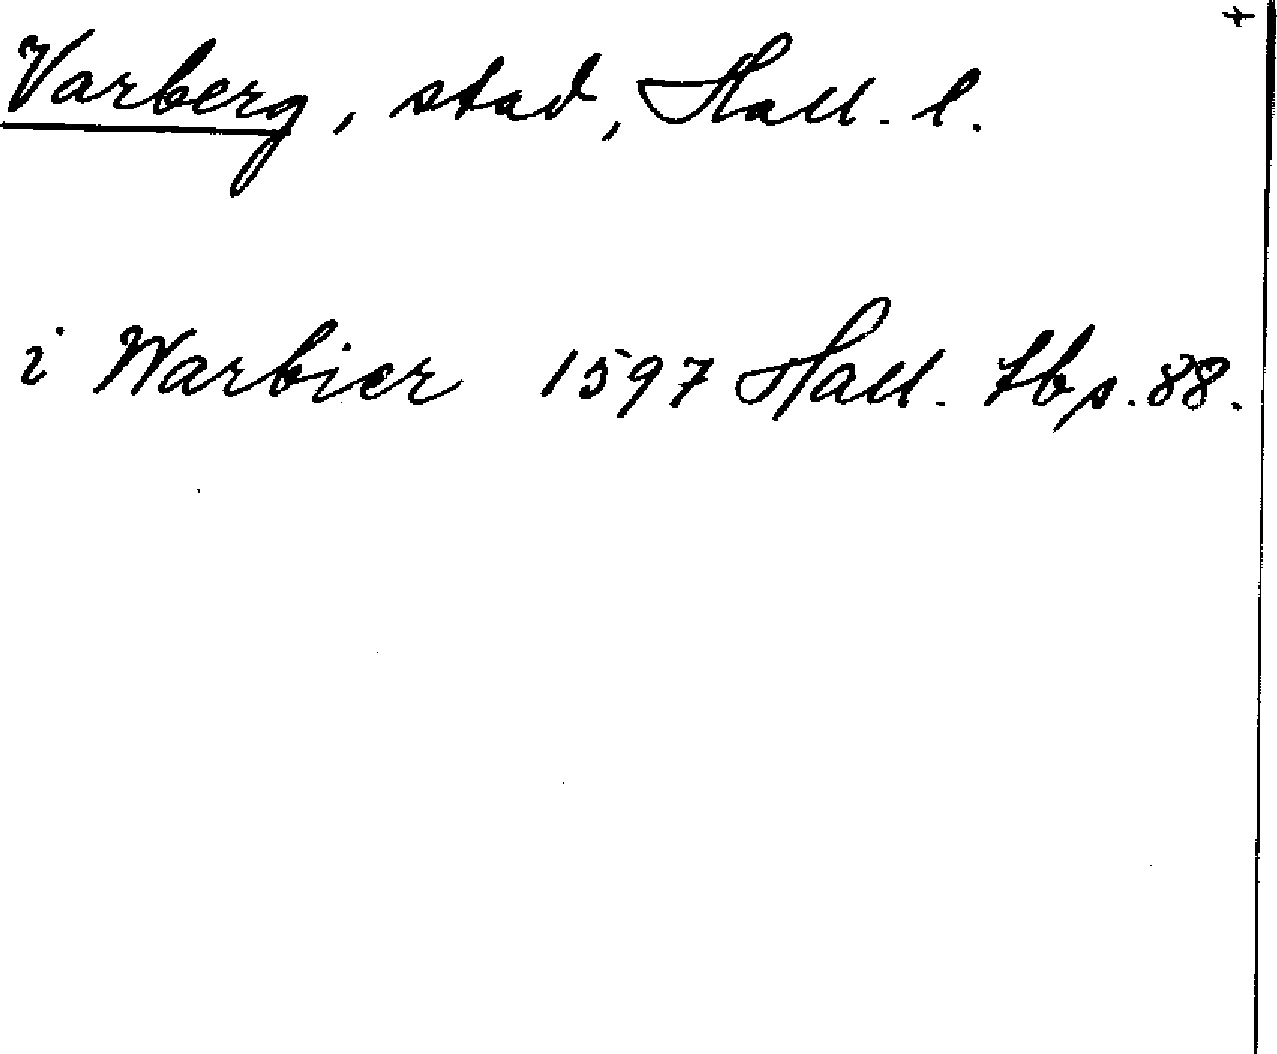 Varberg, stad, Hall. l.
i Warbier 1597 Hall. tb s. 88.